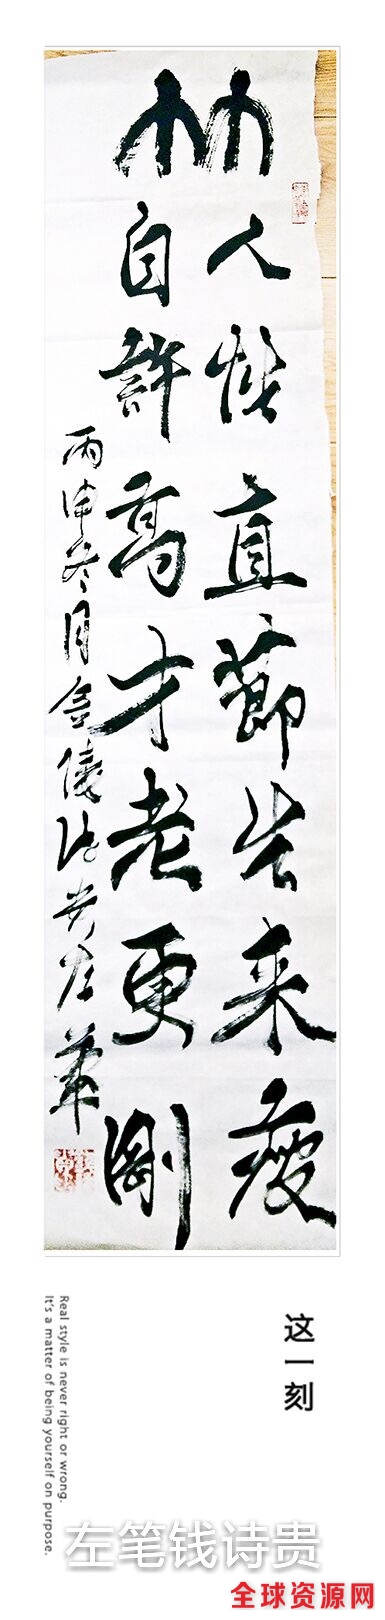 竹
人怜直節生来瘦
自許高才老更剛
丙申冬月金陵诗贵左筆
这一刻
Real style is never right or wrong.
It's a matter of being yourself on purpose.
左笔钱诗贵
全球资源网